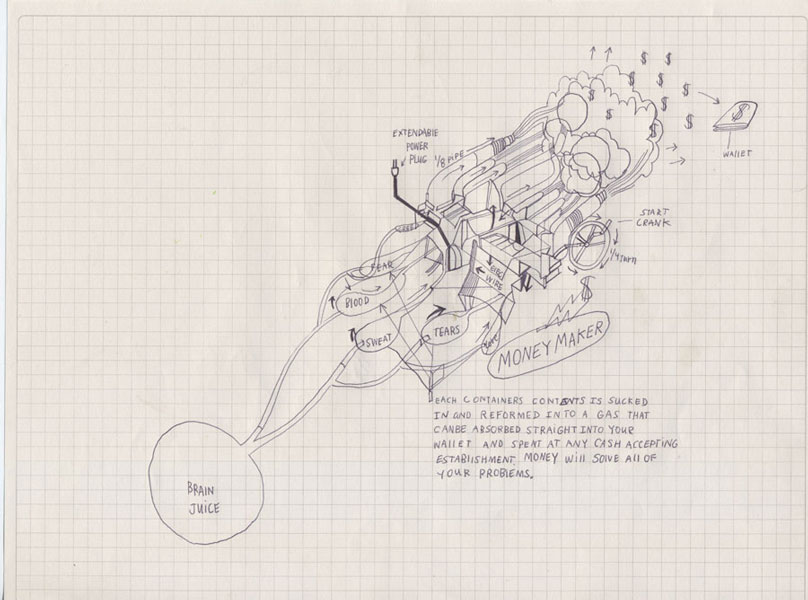 $ $
$ $
$ $
$ $
$ $
$
WALLET
EXTENDABLE
POWER
PLUG
1/8 PIPE
START
CRANK
1/4 TURN
FEAR
BLOOD
WIRE
$
SWEAT
TEARS
MONEY MAKER
EACH CONTAINERS CONTENTS IS SUCKED
IN AND REFORMED INTO A GAS THAT
CANBE ABSORBED STRAIGHT INTO YOUR
WALLET AND SPENT AT ANY CASH ACCEPTING
ESTABLISHMENT. MONEY WILL SOLVE ALL OF
YOUR PROBLEMS.
BRAIN
JUICE